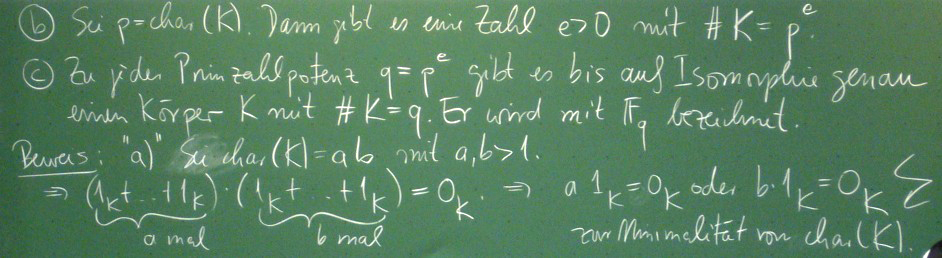 (b) Sei p=char(K). Dann gibt es eine Zahl e>0 mit #K = p^e.
(c) Zu jeder Primzahlpotenz q=p^e gibt es bis auf Isomorphie genau
einen Körper K mit #K=q. Er wird mit F_q bezeichnet.
Beweis: "a)" Sei char(K)=ab mit a,b>1.
⇒ (1_K+...+1_K)·(1_K+...+1_K) = 0_K. ⇒ a 1_K=0_K oder b·1_K=0_K ↯
a mal b mal zur Minimalität von char(K).